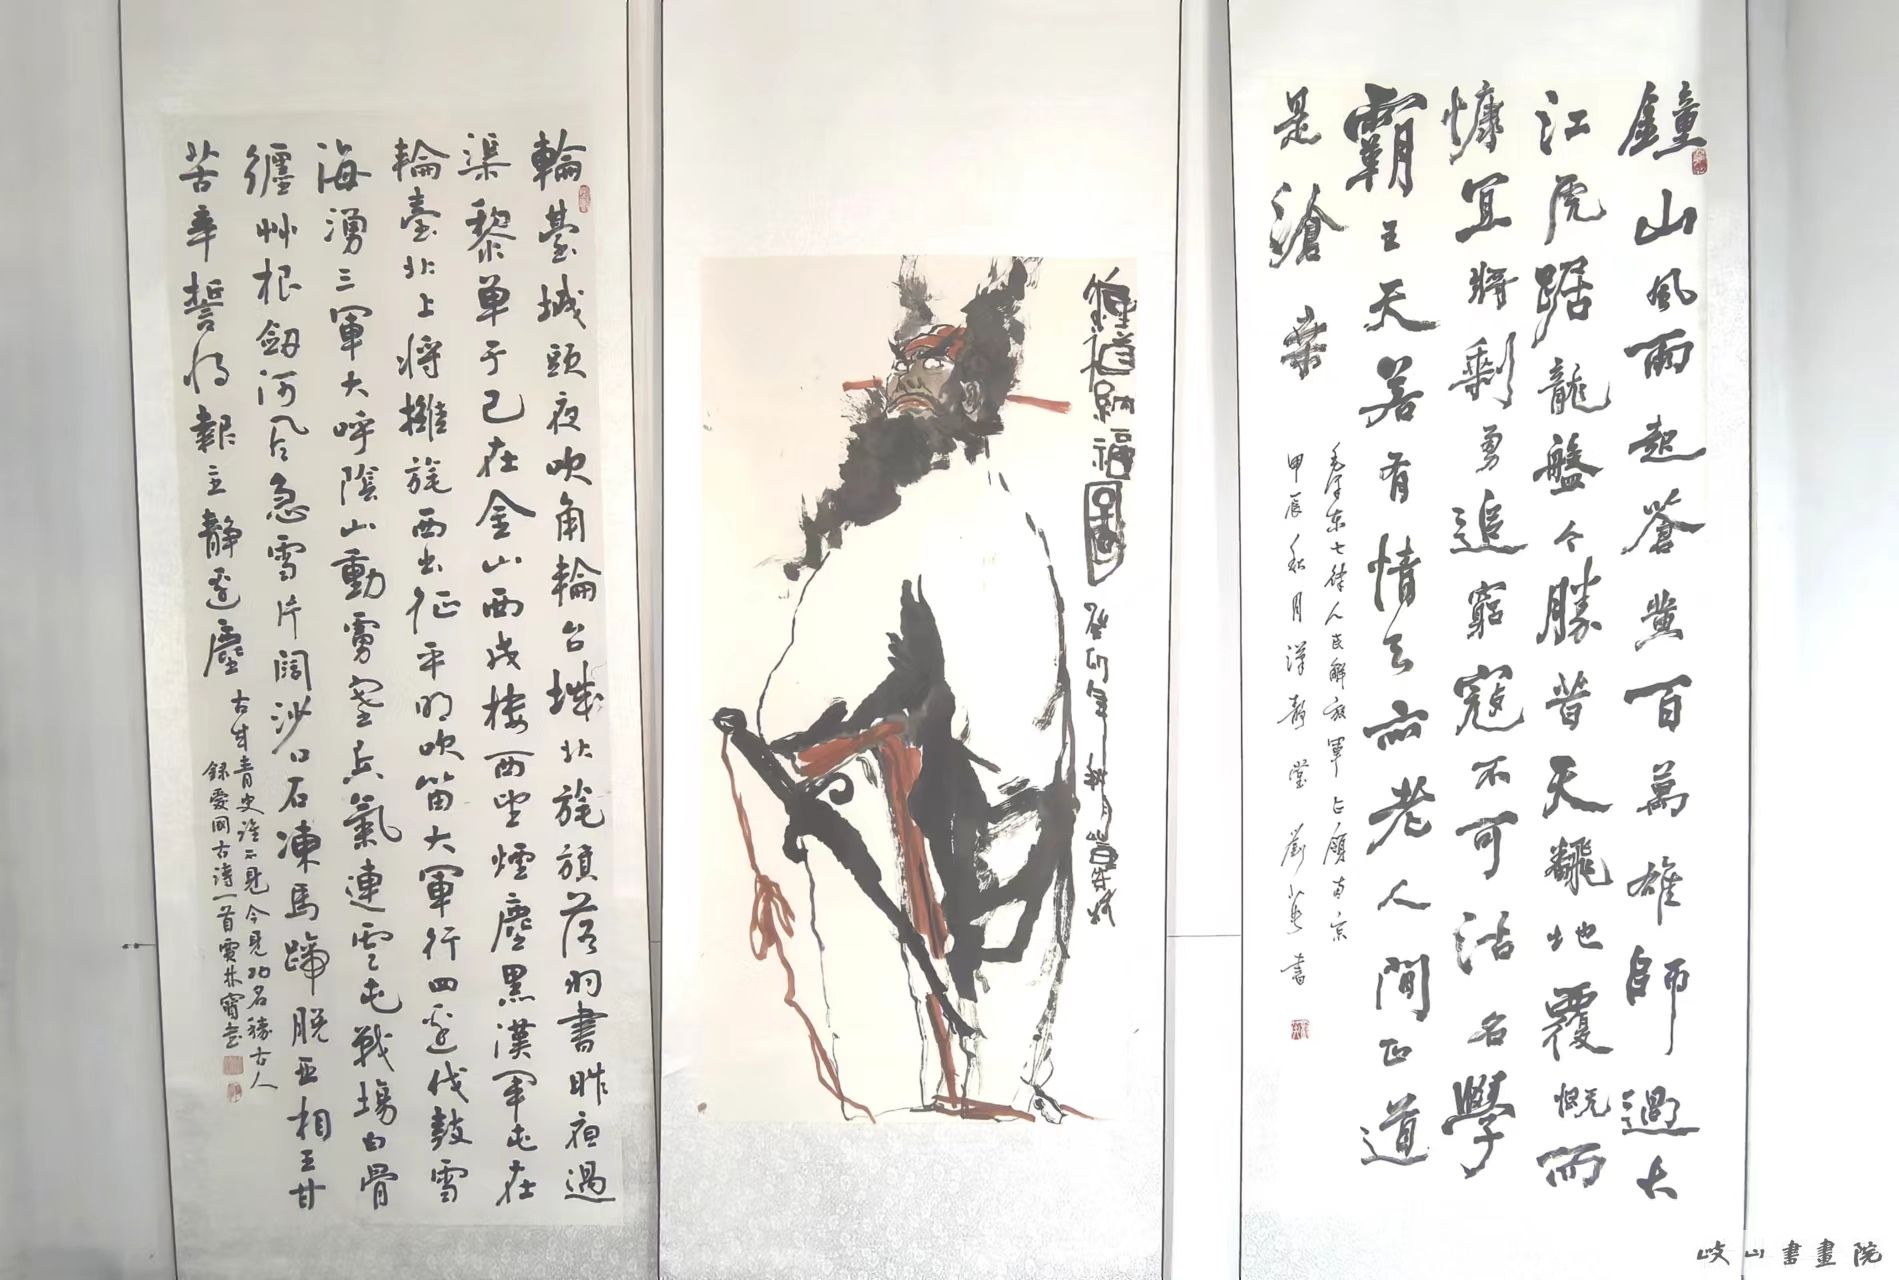 鐘山風雨起蒼黃百萬雄師過大
江虎踞龍盤今勝昔天翻地覆慨而
慷宜將剩勇追窮寇不可沽名學
霸王天若有情天亦老人間正道
是滄桑
毛澤东七律人民解放軍占領南京
甲辰秋月 静堂 劉小 書
納福圖 癸卯年秋月
輪臺城頭夜吹角輪台城北旄旗落羽書昨夜過
渠黎單于已在金山西戍樓西望煙塵黑漢軍屯在
輪臺北上將擁旄西出征平明吹笛大軍行四邊伐鼓雪
海湧三軍大呼陰山動虜塞兵氣連雲屯戰場白骨
纏艸根劒河風急雪片闊沙口石凍馬蹄脫亞相王甘
苦辛誓將報主靜邊塵
古來青史誰不見今見功名勝古人
錄愛國古詩一首賈林寶書
岐山書畫院